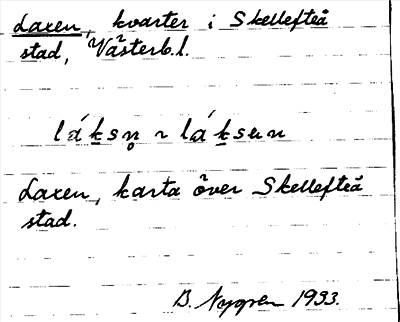 Laxen, kvarter i Skellefteå
stad, Västerb.l.
láksn̥ ~ láksen
Laxen, karta över Skellefteå
stad.
B. Nygren 1933.